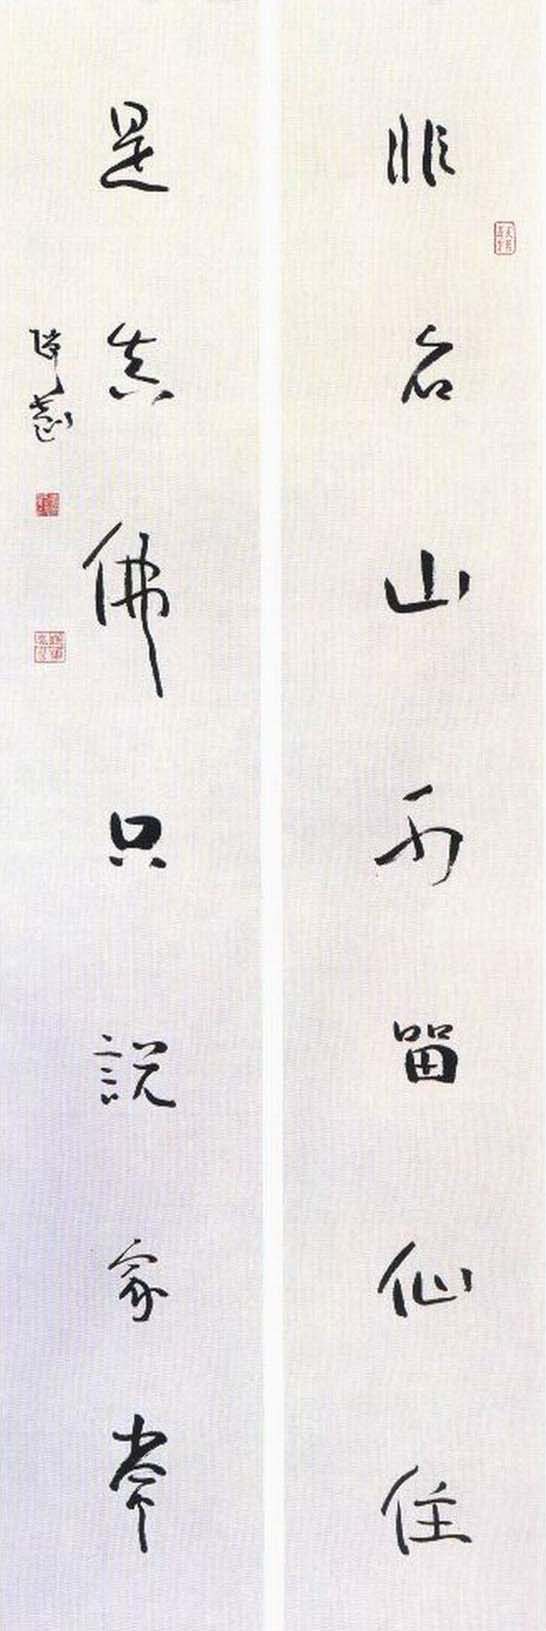 非名山不留仙住
是真佛只說家常